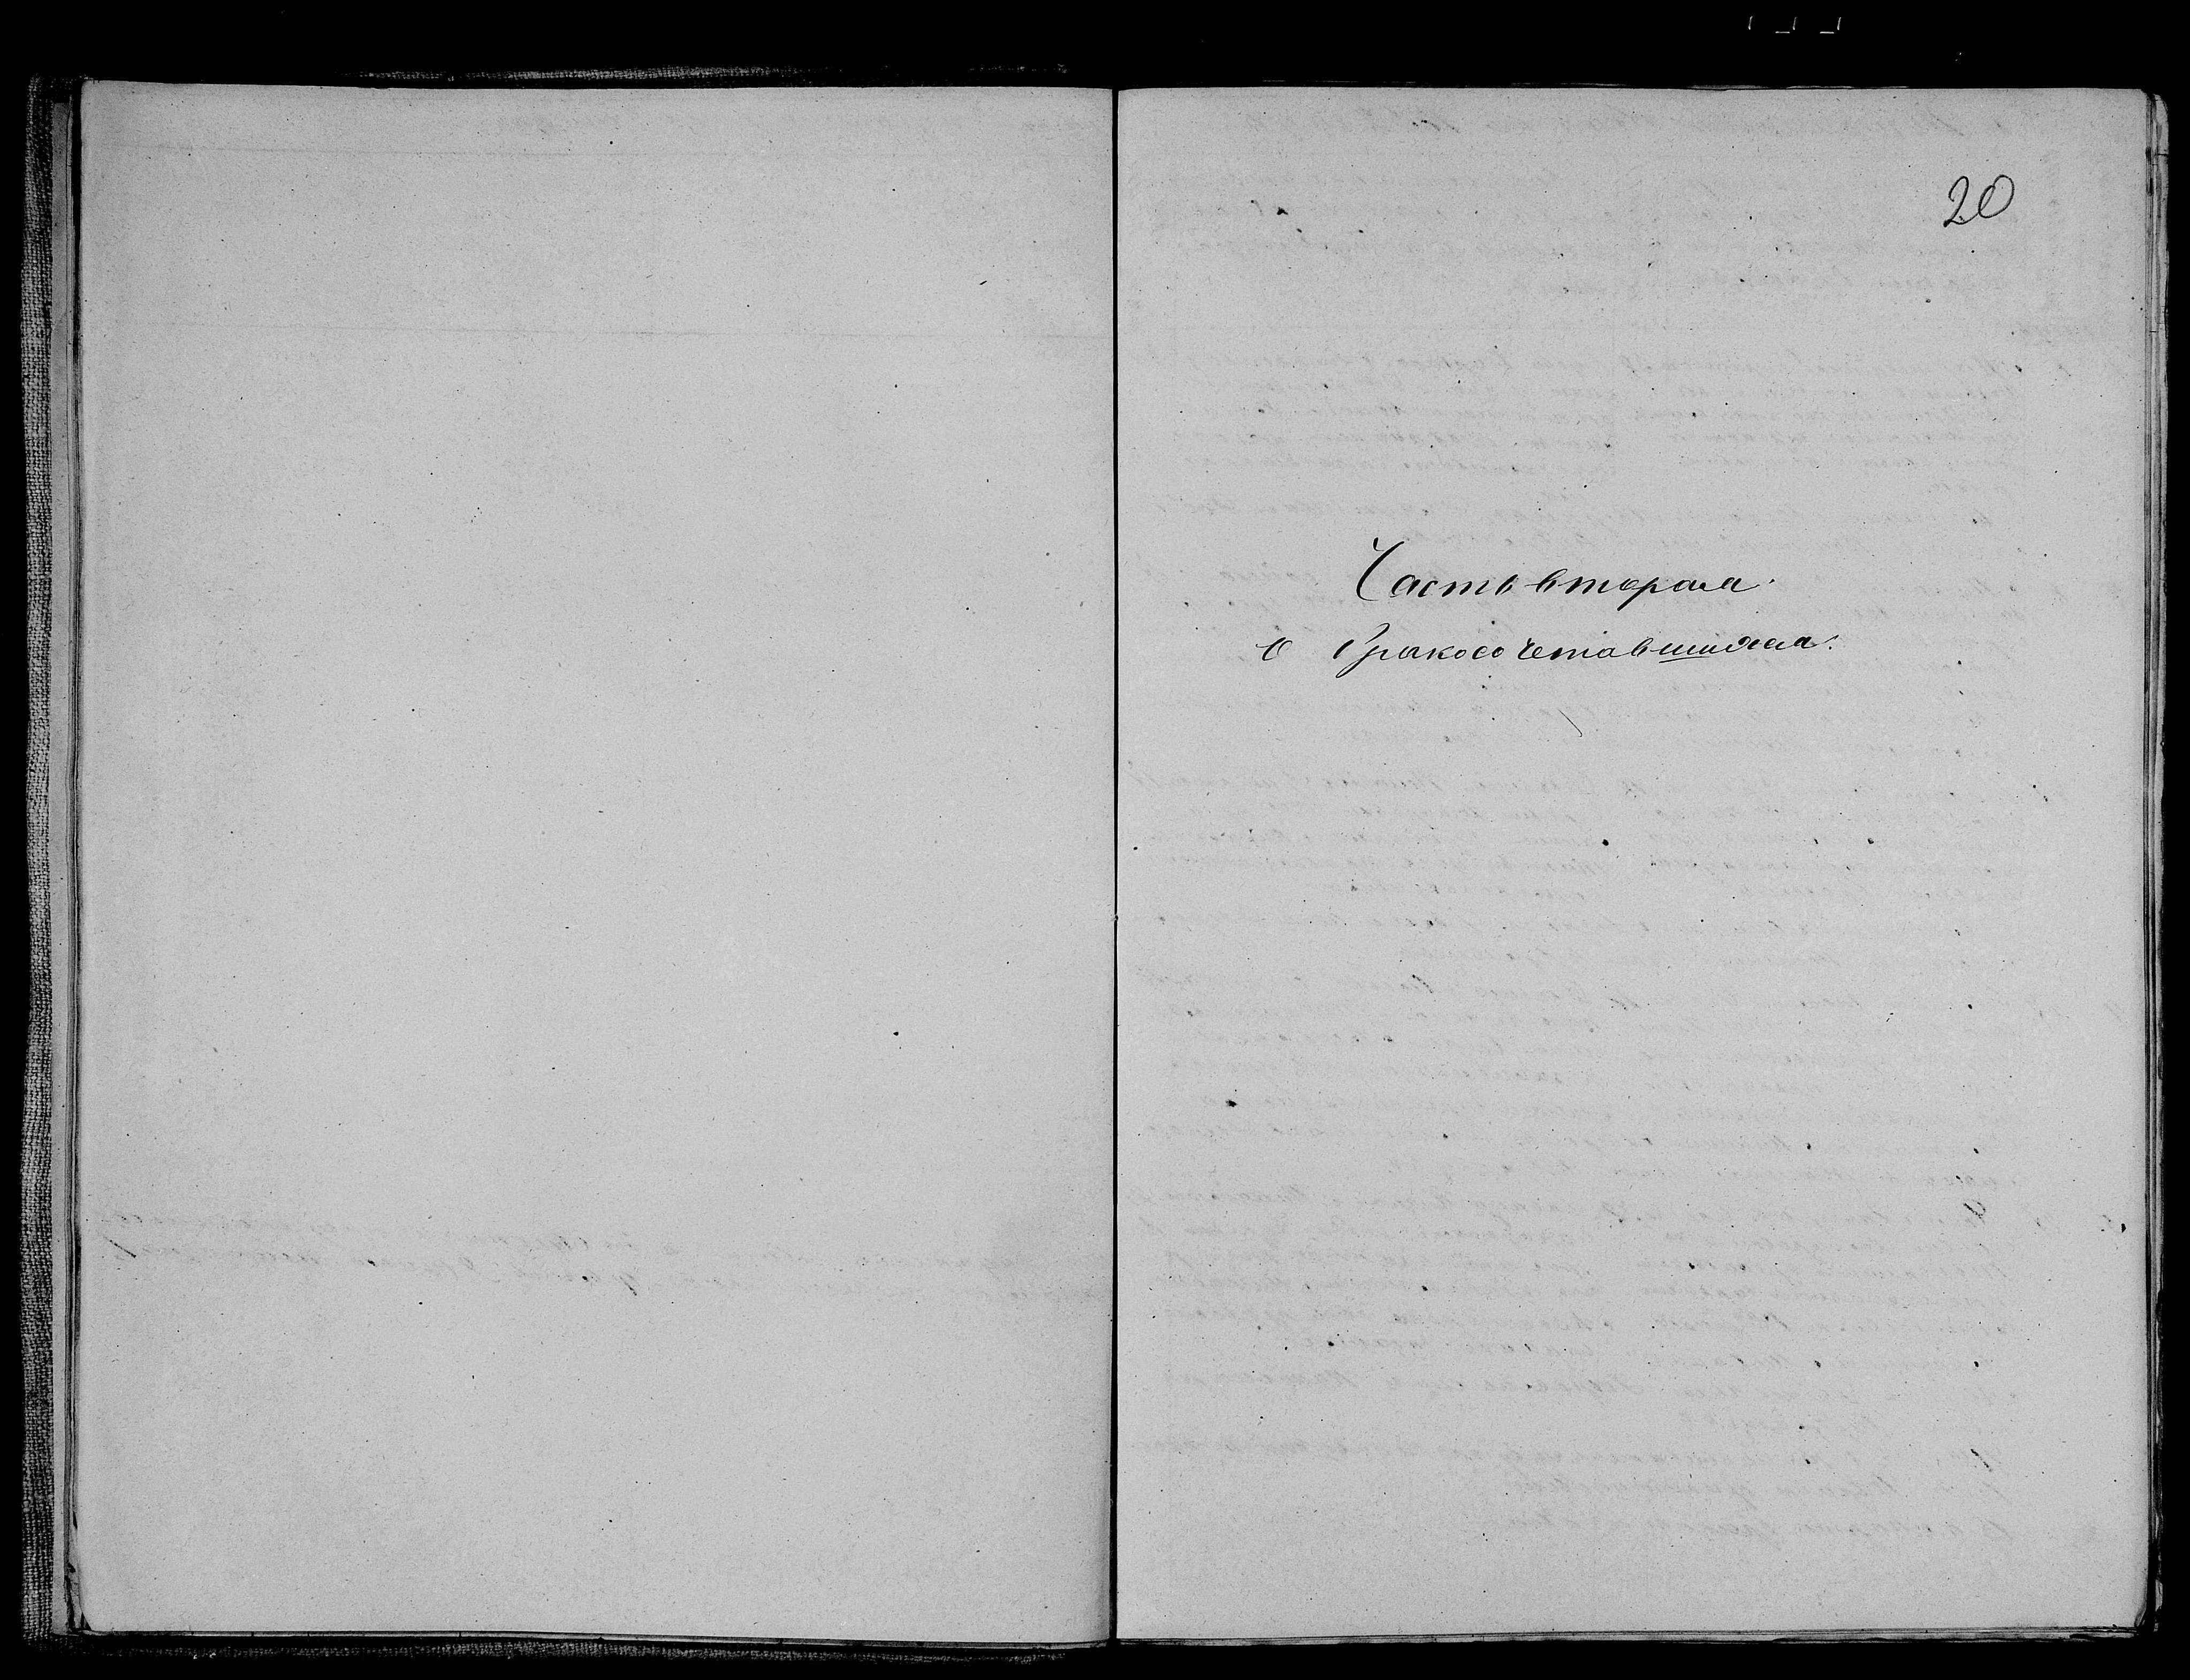 20
Часть вторая.
О бракосочетавшихся.